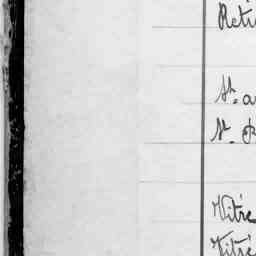 Reti
St. a
St.
Vitré
Vitré